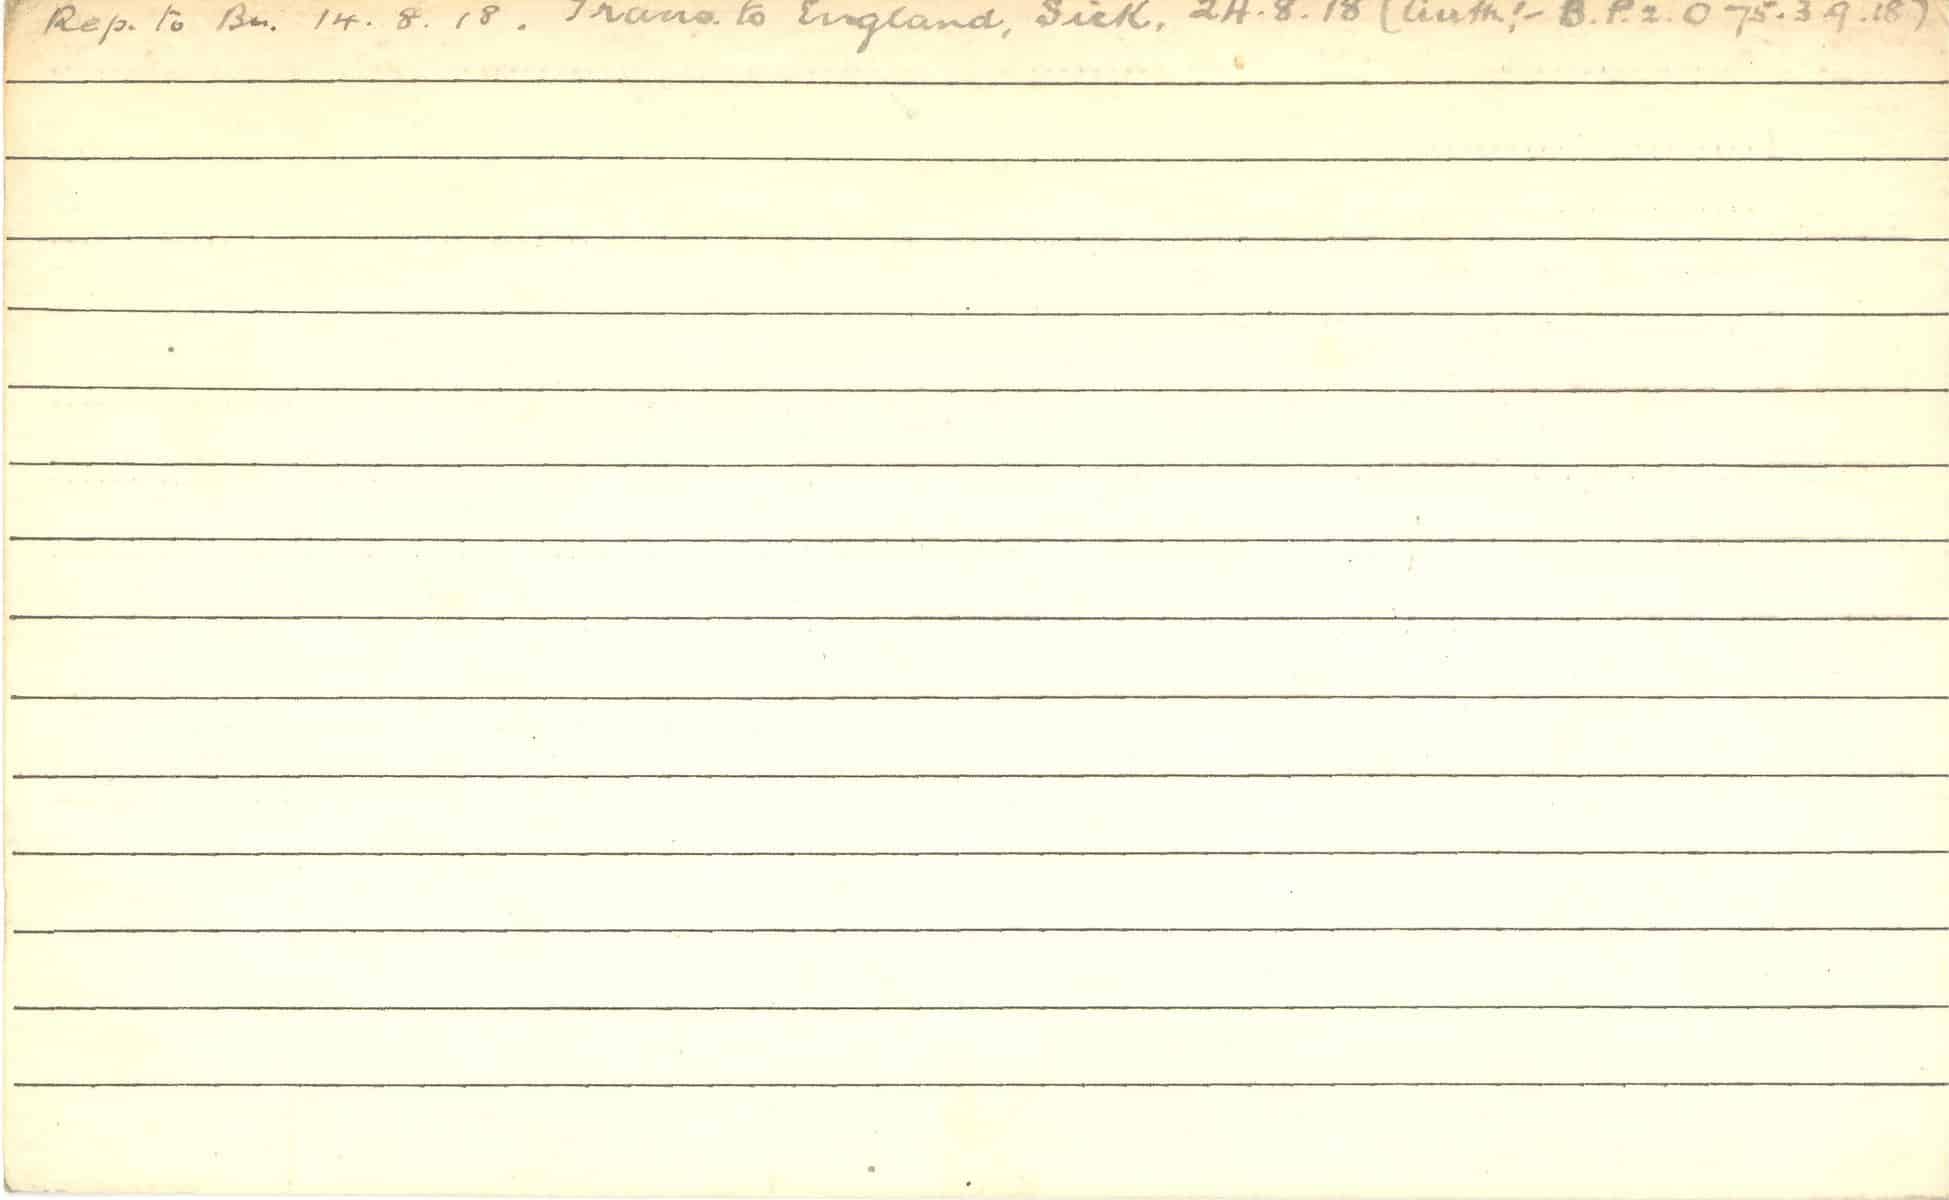 Rep. to Bn. 14. 8. 18. Trans. to England, Sick, 24.8.18 (Auth:- B.P.2.075.3.9.18)